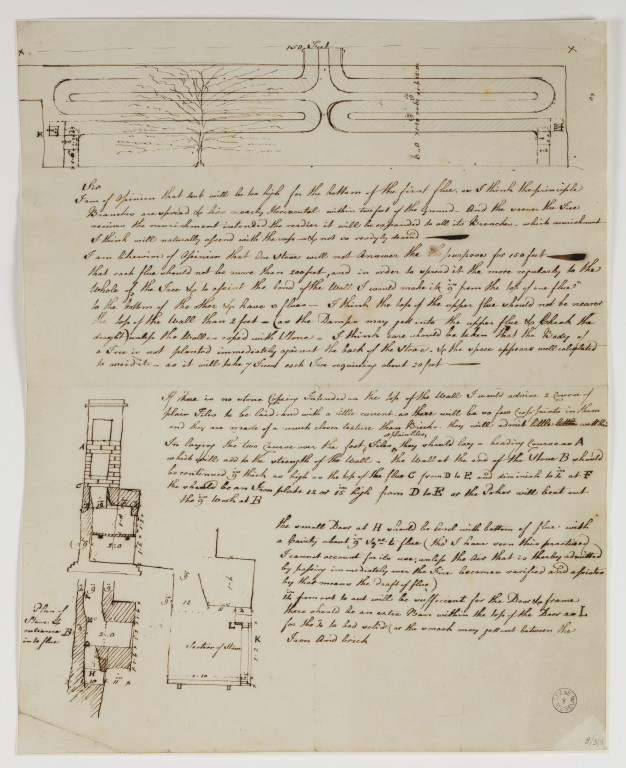 150 Feet
Sir
I am of Opinion that will be too high for the bottom of the first flue, as I think the principle
Branches are spread to lie nearly Horizontal within two foot of the Ground - And the sooner the Tree
receives the nourishment intended the readier it will be expanded to all its Branches - which nourishment
I think will naturally ascend with the and not so readily descend
I am likewise of Opinion that One Stove will not Answer the purpose for 150 feet
that each flue should not be more than 200 feet, and in order to spread it the more regularly to the
Whole of the Tree & to assist the bond of the Wall I would make it 9 from the top of one flue
to the bottom of the other & have 3 flues - I think the top of the upper flue should not be nearer
the top of the Wall than 2 feet - (as the Damps may get into the upper flue & Check the
draght) unless the Wall is coped with Stone - I think care should be taken that the Body of
a Tree is not planted immediately against the back of the Stove - & the space appears well calculated
to avoid it - as it will take 7 Trees each Tree requiring about 20 feet
If there is no stone Coping Intended on the top of the Wall I would advise 2 Courses of
plain Tiles to be laid and with a little cement, as there will be so few joints in them
and they are made of a much closer texture than Bricks. they will admit little wett
In laying the two Courses over the foot Tiles, they should lay a heading Course as A
plain tiles
which will add to the strength of the Wall - the Wall at the end of the Stove B should
be continued 9 thick as high as the top of the flue C from D to E and diminish to at F
there should be an Iron plate 12 or 15 high from D to E or the Poker will beat out
the Work at B
the small Door at H should be level with bottom of flue with
a Cavity about 9 Sqre to flue (tho' I have seen this practised
I cannot account for its use, unless the Air that is thereby admitted
by passing immediately over the Fire becomes rarified and assists
by that means the draft of flue)
from out to out will be sufficient for the Door & frame
there should be an extra Barr within the top of the Door as L
for the to bed solid (or the smoak may get out between the
Iron and brick
A
C
Plan of
Stove &
entrance B
into flue
2..0
H
12
Section of Stove
K
1..10